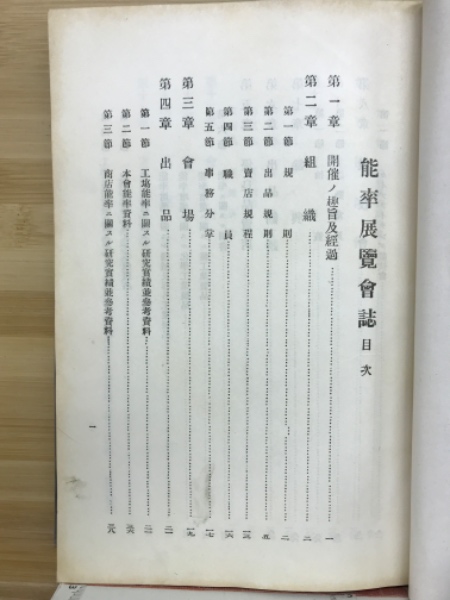 能率展覽會誌 目次
第一章 開催ノ趣旨及經過……一
第二章 組織……二
第一節 規則……二
第二節 出品規則……五
第三節 賣店規程……一三
第四節 職員……一六
第五節 事務分掌……一七
第三章 會場……一九
第四章 出品……二一
第一節 工場能率ニ關スル研究實績並參考資料……二一
第二節 本會能率資料
第三節 商店能率ニ關スル研究實績並參考資料
一